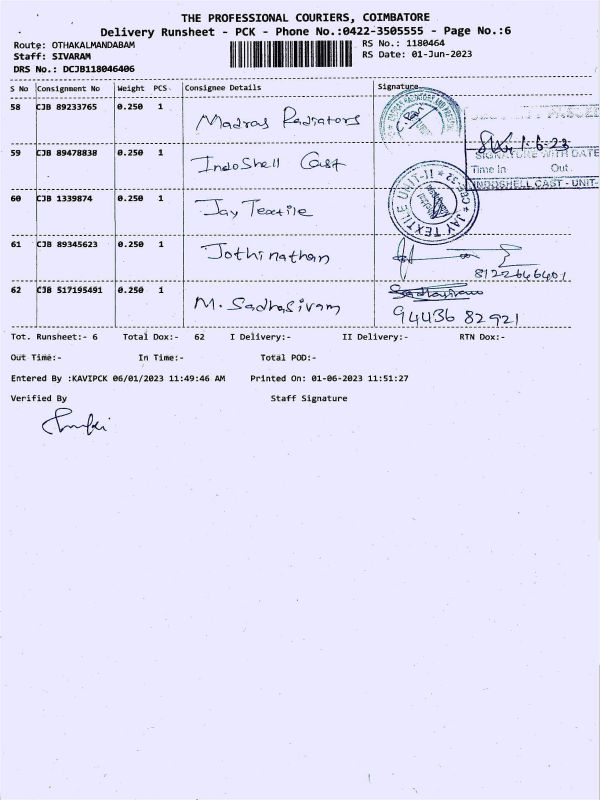 THE PROFESSIONAL COURIERS, COIMBATORE
Delivery Runsheet - PCK - Phone No.:0422-3505555 - Page No.:6
Route: OTHAKALMANDABAM RS No.: 1180464
Staff: SIVARAM RS Date: 01-Jun-2023
DRS No.: DCJB118046406
S No Consignment No Weight PCS Consignee Details Signature
58 CJB 89233765 0.250 1 Madras Radiators
1-6-23
59 CJB 89478838 0.250 1 IndoShell Cast
SIGNATURE WITH DATE
Time In Out
INDOSHELL CAST - UNIT-
60 CJB 1339874 0.250 1 Jay Textile
JAY TEXTILE UNIT-II * CBE-32 *
61 CJB 89345623 0.250 1 Jothinathan
8122646401
62 CJB 517195491 0.250 1 M. Sadhasivam
Sadhasivam
94436 82921
Tot. Runsheet:- 6 Total Dox:- 62 I Delivery:- II Delivery:- RTN Dox:-
Out Time:- In Time:- Total POD:-
Entered By :KAVIPCK 06/01/2023 11:49:46 AM Printed On: 01-06-2023 11:51:27
Verified By Staff Signature